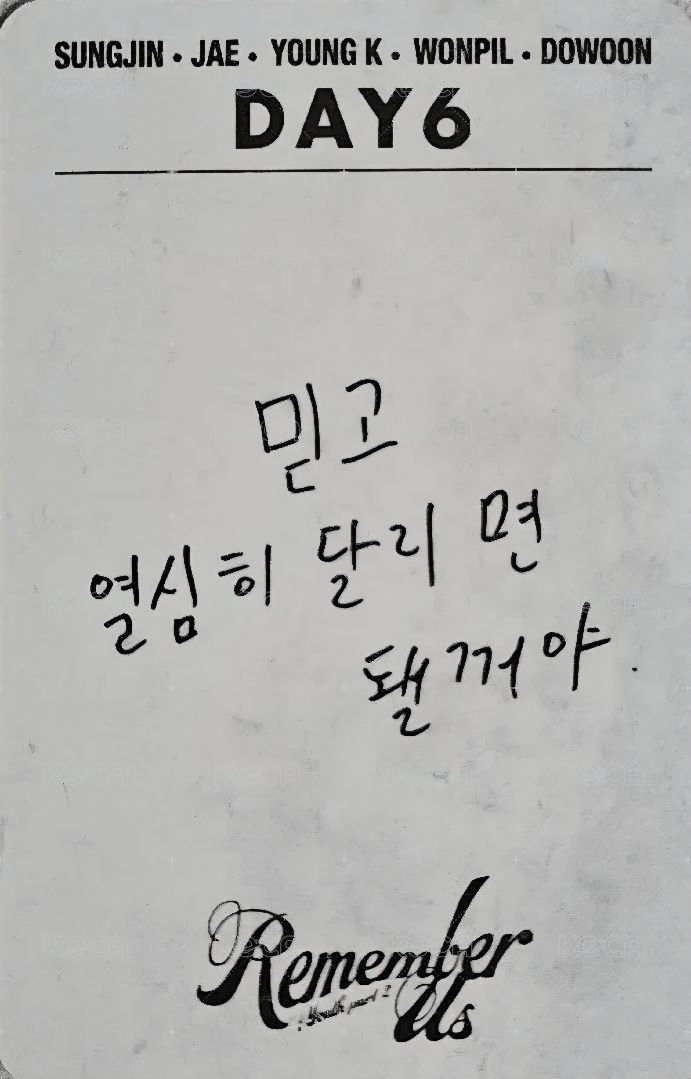 SUNGJIN • JAE • YOUNG K • WONPIL • DOWOON
DAY6
믿고
열심히 달리면
됄꺼야.
Remember
: Youth part 2
Us